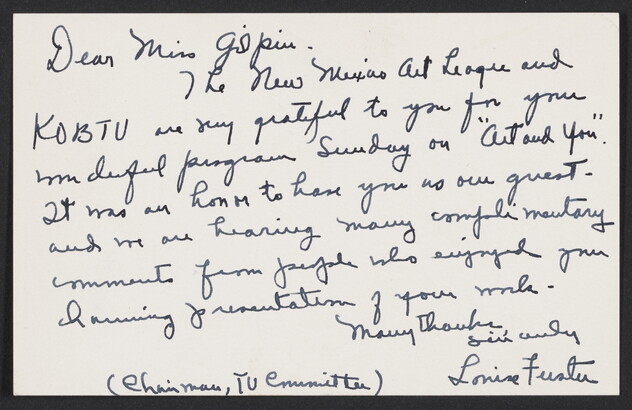 Dear Miss Gilpin.
The New Mexico Art League and
KOBTV are very grateful to you for your
wonderful program Sunday on "Art and You".
It was an honor to have you as our guest-
and we are hearing many complimentary
comments from people who enjoyed your
charming presentation of your work-
Many thanks
Sincerely
Louise
(Chairman, TV Committee)